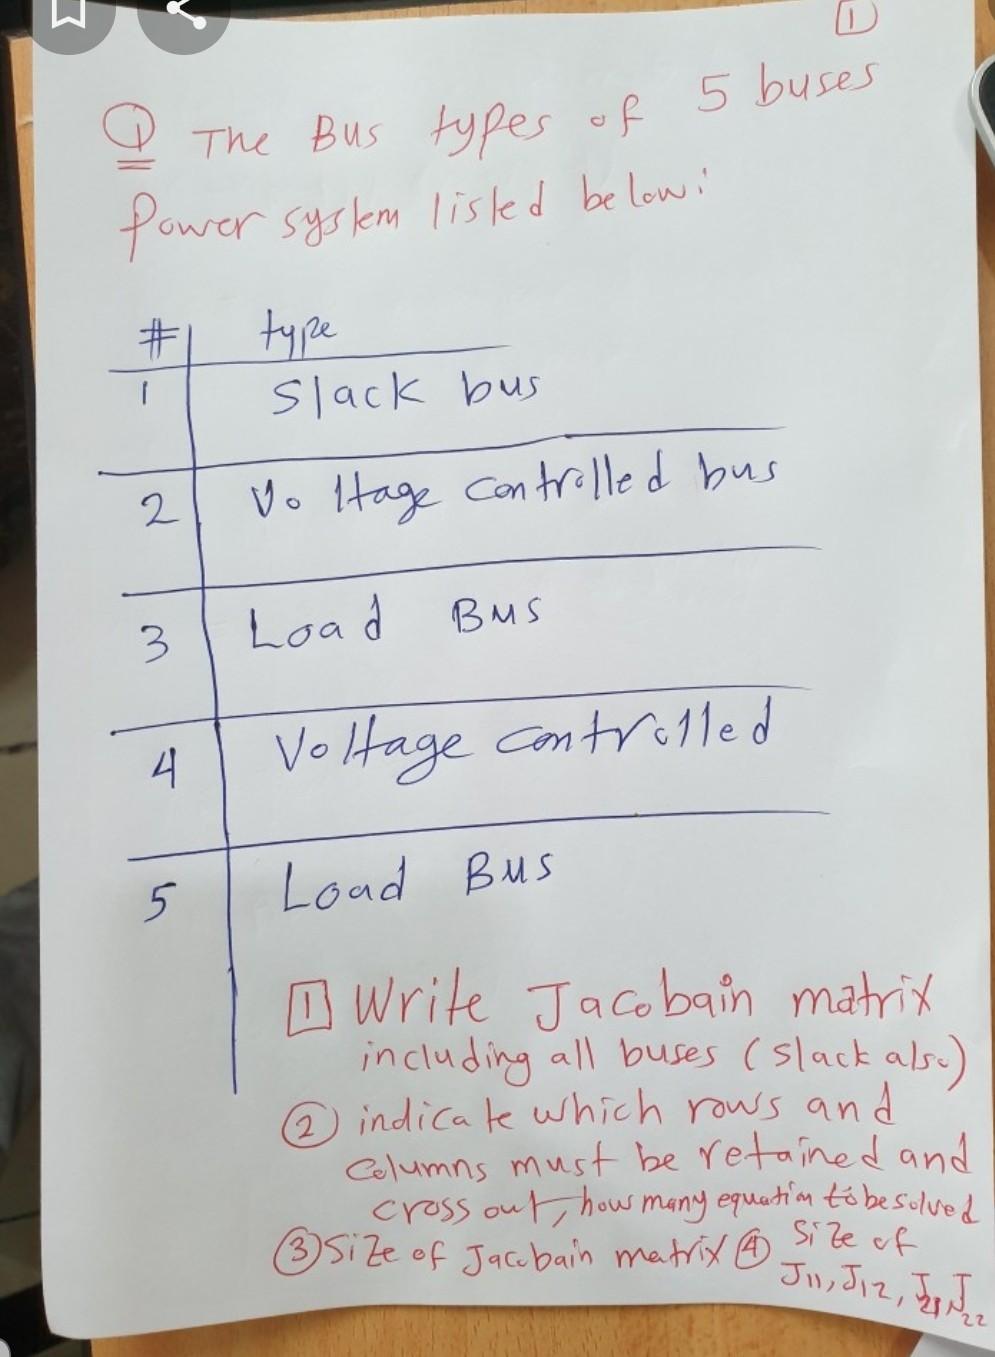 1
Q The Bus types of 5 buses
Power system listed below:
# type
1 Slack bus
2 Voltage controlled bus
3 Load Bus
4 Voltage controlled
5 Load Bus
1 Write Jacobain matrix
including all buses (slack also)
2 indicate which rows and
columns must be retained and
cross out, how many equation to be solved
3 Size of Jacobain matrix 4 Size of
J11, J12, J21, J22